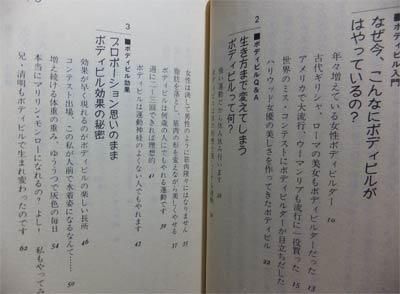 ■ボディビル入門
なぜ今、こんなにボディビルが
はやっているの?
年々増えている女性ボディビルダー 10
古代ギリシャ、ローマの美女もボディビルダーだった 13
アメリカで大流行、ウーマンリブも流行に一役買った 15
世界のミス・コンテストにボディビルダーが目立ちだした
ハリウッド女優の美しさを作ってきたボディビル 22
2
■ボディビルQ&A
生き方まで変えてしまう
ボディビルって何?
強い運動だから休み休み行います
女性は決して男性のように筋肉隆々にはなりません 35
脂肪を落とし、筋肉の形を変えながら美しくやせる 37
ボディビルは何歳の人にもやれる運動です 39
週に二~三回できれば理想的 41
ボディビルは運動神経のよくない人でもやれます 43
3
■ボディビル効果
プロポーション思いのまま
ボディビル効果の秘密
効果が早く現れるのがボディビルの楽しい長所 46
コンテスト出場、この私が人前で水着姿になるなんて… 50
増え続ける体重の重み、ゆううつで灰色の毎日 54
本当にマリリン・モンローになれるの? よし! 私もやってみ
兄・清明もボディビルで生まれ変わったのです 62